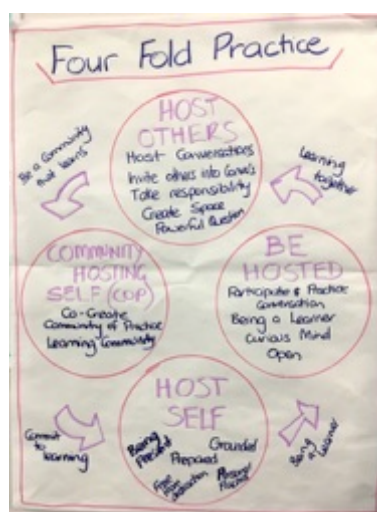 Four Fold Practice
HOST
OTHERS
Host Conversations
Invite others into Conv's
Take responsibility
Create Space
Powerful Question
Be a Community
that learns
Learning
together
COMMUNITY
HOSTING
SELF (COP)
Co-Create
Community of Practice
Learning Community
BE
HOSTED
Participate & Practice
Conversation
Being a Learner
Curious Mind
Open
HOST
SELF
Being
Present
Grounded
Prepared
Free
from
distraction
Personal
Practice
Commit
to
learning
Being
a Learner